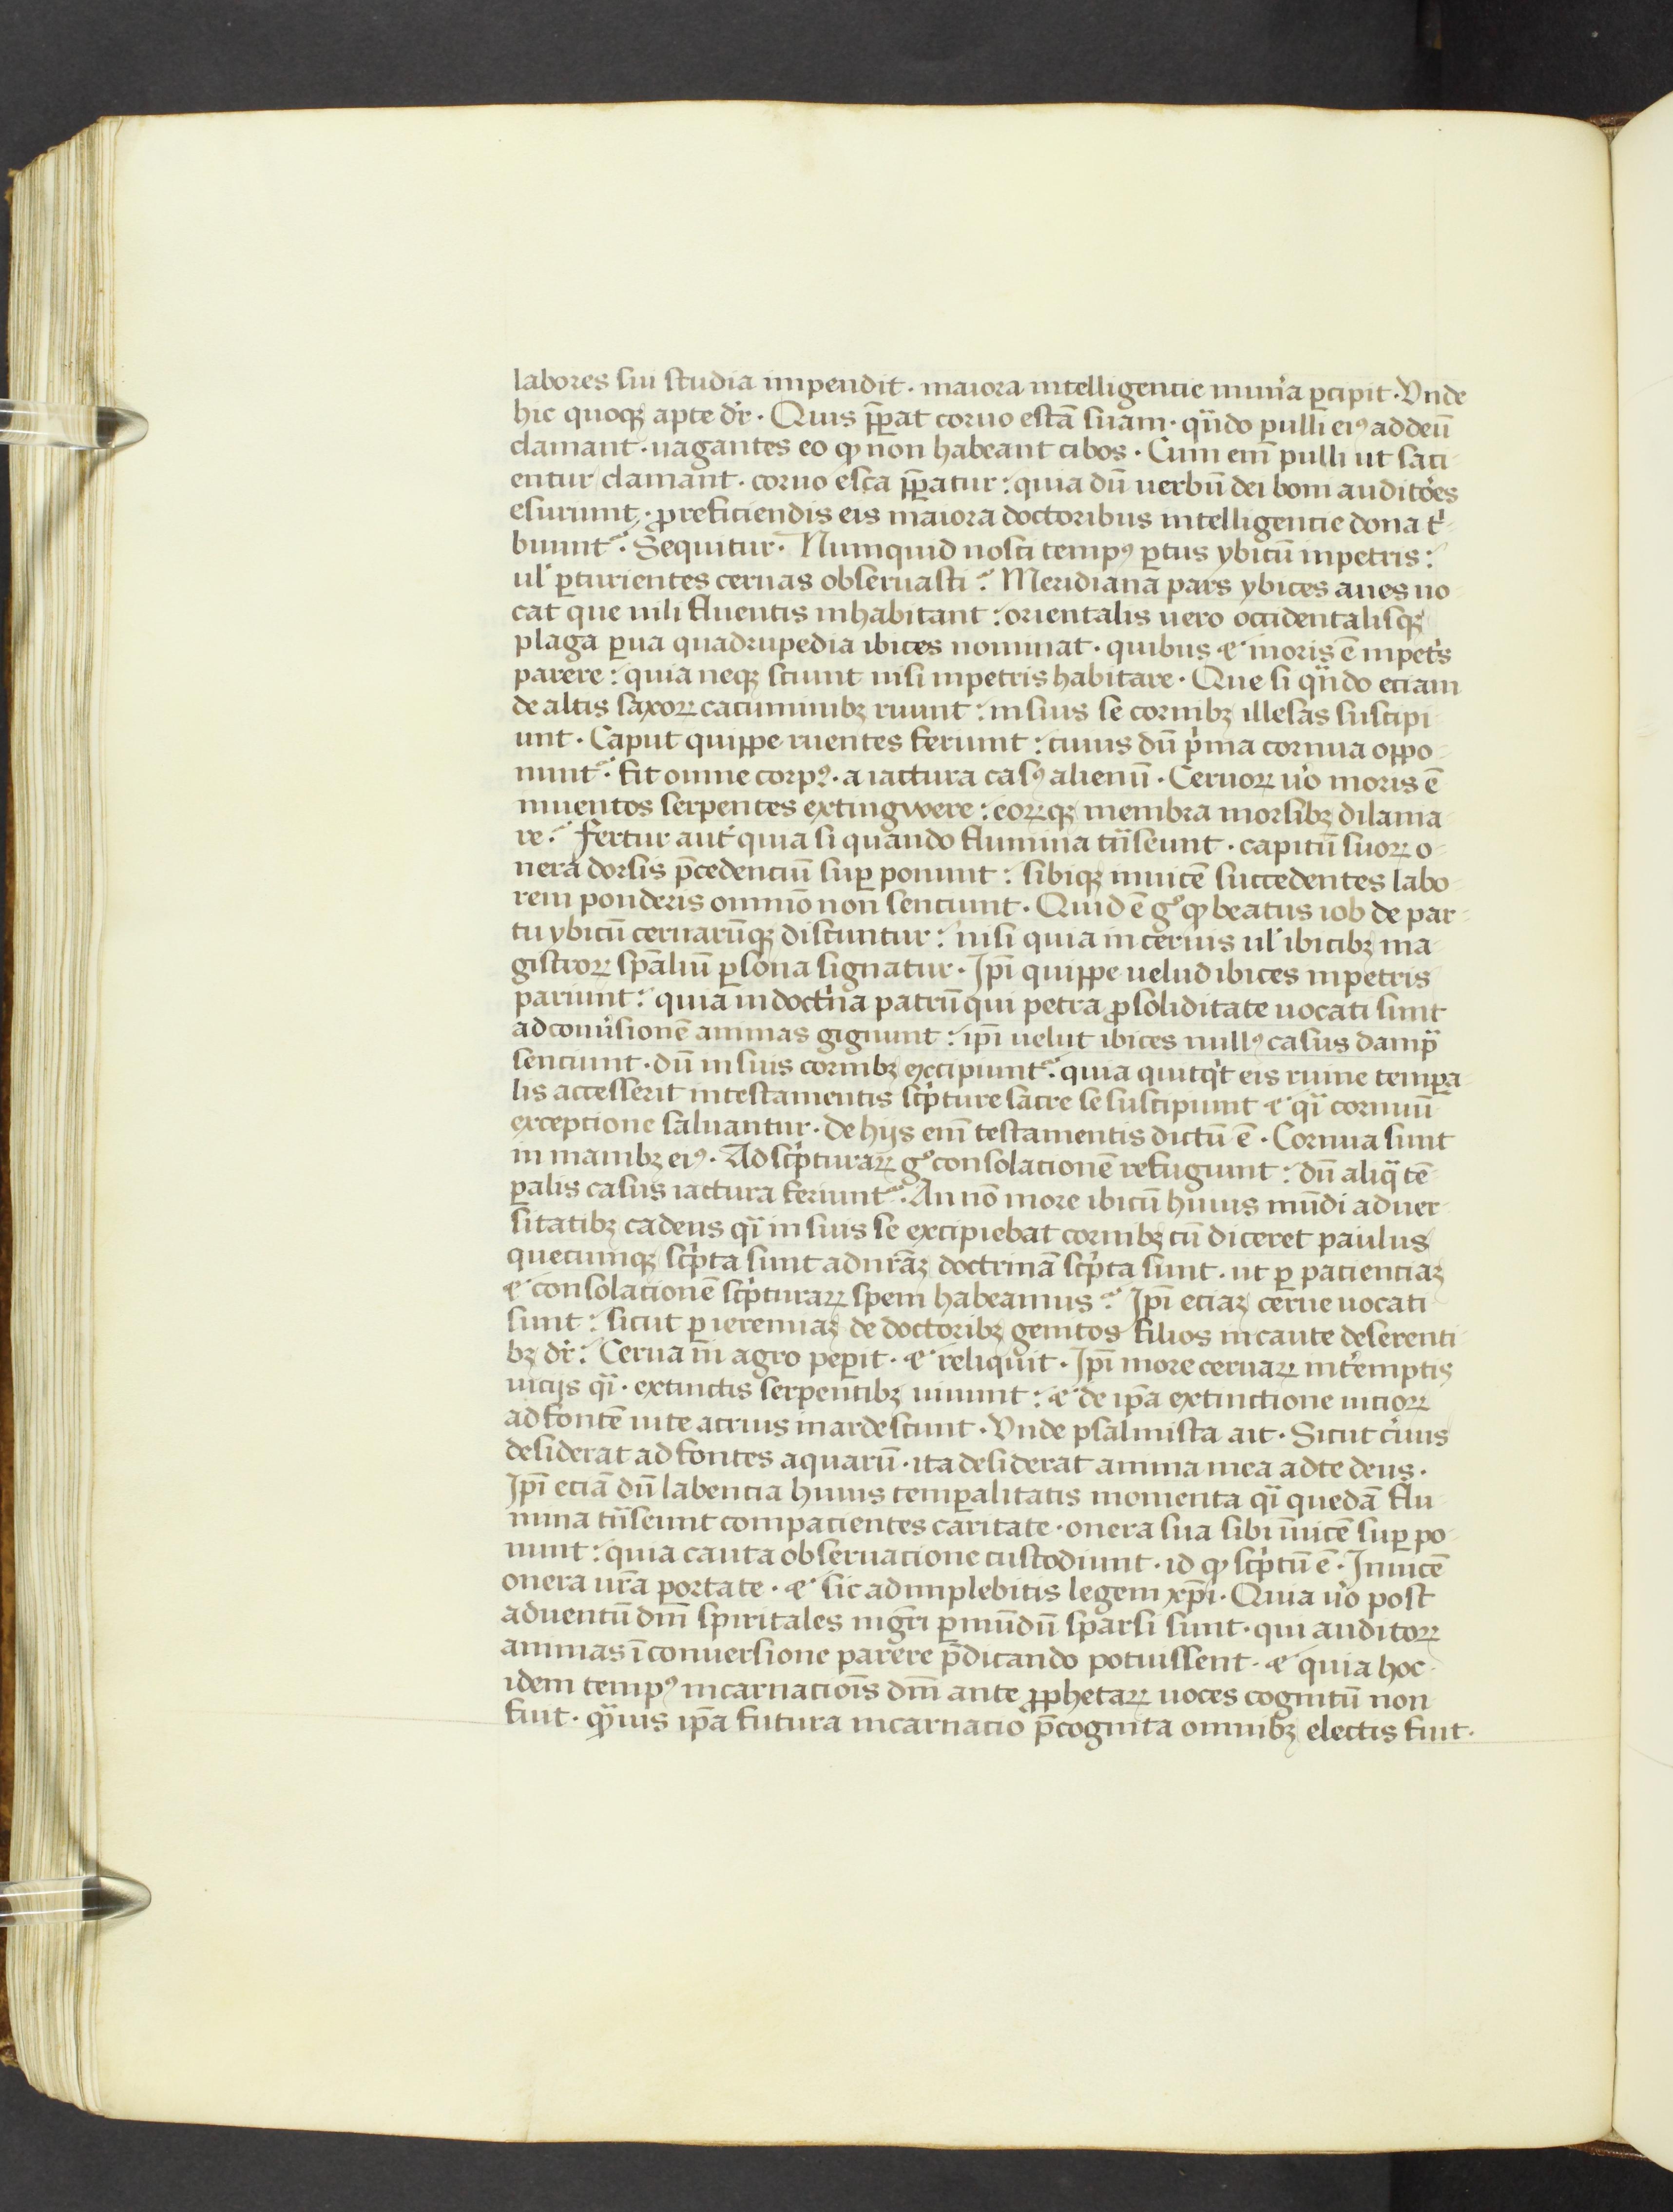 labores sui studia impendit · maiora intelligencie mun̓a ꝑcipit · Vnde
hic quoqꝫ apte dr̄ · Quis p̄ꝑat coruo escā suam · qn̄do pulli eiꝰ ad deū
clamant · uagantes eo ꝙ non habeant cibos · Cum eni̅ pulli ut saci
entur clamant · coruo esca p̄ꝑatur : quia dū uerbū dei boni audito̓es
esuriunt · ꝓ reficiendis eis maiora doctoribus intelligencie dona t̓
buunt᷑ · Sequitur · Numquid nosti tempꝰ ꝑtus ybicū in petris :
ul̓ ꝑturientes ceruas obseruasti : Meridiana pars ybices aues uo
cat que nili fluentis inhabitant : orientalis uero occidentalisqꝫ
plaga ꝑua quadrupedia ibices nominat · quibus ⁊ moris ē in pet̓s
parere : quia neqꝫ sciunt nisi in petris habitare · Que si qn̄do eciam
de altis saxoꝝ cacuminibꝫ ruunt : in suis se cornibꝫ illesas suscipi
unt · Caput quippe ruentes feriunt : cuius dū p̓ma cornua oppo
nunt᷑ · fit omne corpꝰ · a iactura casꝰ alienū · Ceruoꝝ u̓o moris ē
inuentos serpentes extingwere : eoꝝqꝫ membra morsibꝫ dilania
re : fertur aut̓ quia si quando flumina tn̄seunt · capitū suoꝝ o
nera dorsis p̄cedenciū suꝑ ponunt : sibiqꝫ inuicē succedentes labo
rem ponderis omnīo non senciunt · Quid ē gͦ ꝙ beatus iob de par
tu ybicū ceruarūqꝫ discuntur : nisi quia in ceruis ul̓ ibicibꝫ ma
gistroꝝ sp̄aliū ꝑsona signatur · Ip̄i quippe uelud ibices in petris
pariunt : quia in doct̓na patrū qui petra ꝓ soliditate uocati sunt
ad conu̓sionē animas gignunt : ip̄i uelut ibices nullꝰ casus dampn̄
senciunt · dū in suis cornibꝫ excipiunt᷑ · quia quitq̓t eis ruine tempora
lis accesserit in testamentis sc̓pture sacre se suscipiunt ⁊ qi̅ cornuū
exceptione saluantur · de hijs eni̅ testamentis dictū ē · Cornua sunt
in manibꝫ eiꝰ · Ad sc̓pturaꝝ gͦ consolacionē refugiunt : dū aliq̄ tē
ꝑalis casus iactura feriunt᷑ · An no̅ more ibicū huius mūdi aduer
sitatibꝫ cadens qi̅ in suis se excipiebat cornibꝫ cū diceret paulus
quecumqꝫ sc̓pta sunt ad nr̄aꝫ doctrinā sc̓pta sunt · ut ꝑ pacienciaꝫ
⁊ consolacionē sc̓pturaꝝ spem habeamus : Ip̄i eciaꝫ cerue uocati
sunt : sicut ꝑ ieremiaꝫ de doctoribꝫ genitos filios incaute deserenti
bꝫ dr̄ : Cerua in̄ agro peꝑit · ⁊ reliquit · Ip̄i more ceruaꝝ int̓emptis
uicijs qi̅ · extinctis serpentibꝫ uiuunt : ⁊ de ip̄a extinctione uicioꝝ
ad fontē uite acrius inardescunt · Vnde psalmista ait · Sicut c̓uus
desiderat ad fontes aquarū · ita desiderat anima mea ad te deus ·
Ip̄i eciā dū labencia huius temꝑalitatis momenta qi̅ quedā flu
mina tn̄seunt compacientes caritate · onera sua sibi īuicē suꝑ po
nunt : quia cauta obseruacione custodiunt · id ꝙ sc̓ptū ē · Inuicē
onera ur̄a portate · ⁊ sic adimplebitis legem xp̄i · Quia u̓o post
aduentū dn̄i spiritales mgr̄i ꝑ mūdū sparsi sunt · qui auditoꝝ
animas ī conuersione parere p̄dicando potuissent · ⁊ quia hoc
idem tempꝰ incarnaciōis dn̄i ante ꝓphetaꝝ uoces cognitū non
fuit · quāuis ip̄a futura incarnacio p̄cognita omnibꝫ electis fuit ·